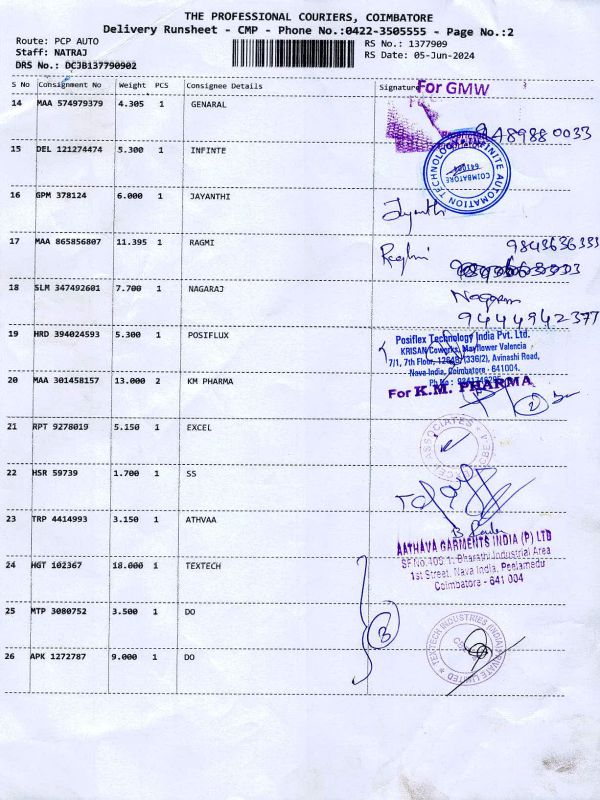 THE PROFESSIONAL COURIERS, COIMBATORE
Delivery Runsheet - CMP - Phone No.:0422-3505555 - Page No.:2
Route: PCP AUTO
RS No.: 1377909
Staff: NATRAJ
RS Date: 05-Jun-2024
DRS No.: DCJB137790902
S No Consignment No Weight PCS Consignee Details Signature
For GMW
14 MAA 574979379 4.305 1 GENARAL
9489880033
15 DEL 121274474 5.300 1 INFINTE
INFINITE AUTOMATION TECHNOLOGY
COIMBATORE
16 GPM 378124 6.000 1 JAYANTHI
Jayanthi
17 MAA 865856807 11.395 1 RAGMI
Ragmi
9843636333
18 SLM 347492601 7.700 1 NAGARAJ
Nagaraj
9444942377
19 HRD 394024593 5.300 1 POSIFLUX
Posiflex Technology India Pvt. Ltd.
KRISAN Coworks, Mayflower Valencia
7/1, 7th Floor, (336/2), Avinashi Road,
Nava India, Coimbatore - 641004.
Ph No :
20 MAA 301458157 13.000 2 KM PHARMA
For K.M. PHARMA
2
21 RPT 9278019 5.150 1 EXCEL
EXCEL ASSOCIATES
22 HSR 59739 1.700 1 SS
23 TRP 4414993 3.150 1 ATHVAA
AATHAVA GARMENTS INDIA (P) LTD
SF No.400/1, Bharathi Industrial Area
1st Street, Nava India, Peelamedu
Coimbatore - 641 004
24 HGT 102367 18.000 1 TEXTECH
25 MTP 3080752 3.500 1 DO
3
TEXTECH INDUSTRIES (INDIA) PRIVATE LIMITED
26 APK 1272787 9.000 1 DO